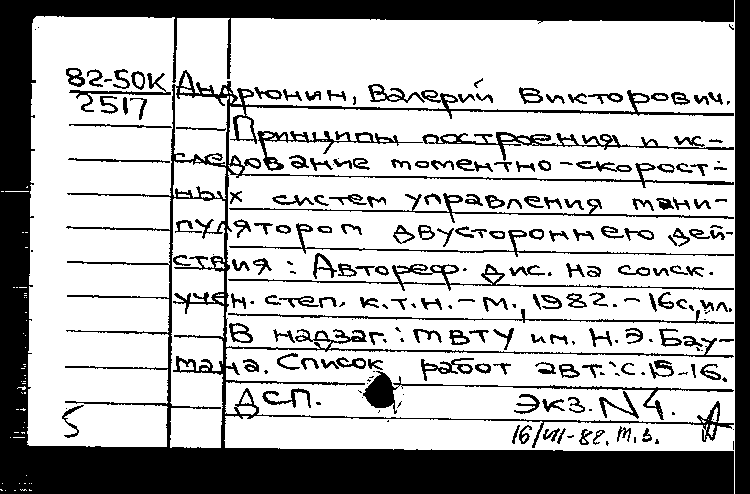 82-50К Андрюнин, Валерий Викторович.
2517
Принципы построения и ис-
следование моментно-скорост-
ных систем управления мани-
пулятором двустороннего дей-
ствия: Автореф. дис. на соиск.
учен. степ. к.т.н. - М., 1982. - 16с., ил.
В надзаг.: МВТУ им. Н.Э. Бау-
мана. Список работ авт.: с.15-16.
ДСП. Экз. N4.
5 16/VII-82.